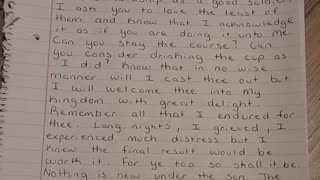 as a good soldier.
I ask you to love the least of
them and know that I acknowledge
it as if you are doing it unto Me.
Can you stay the course? Can
you consider drinking the cup as
I did? Know that in no wise
manner will I cast thee out but
I will welcome thee into My
Kingdom with great delight.
Remember all that I endured for
thee. Long nights, I grieved, I
experienced much distress but I
knew the final result would be
worth it. For ye too so shall it be.
Nothing is new under the son. The